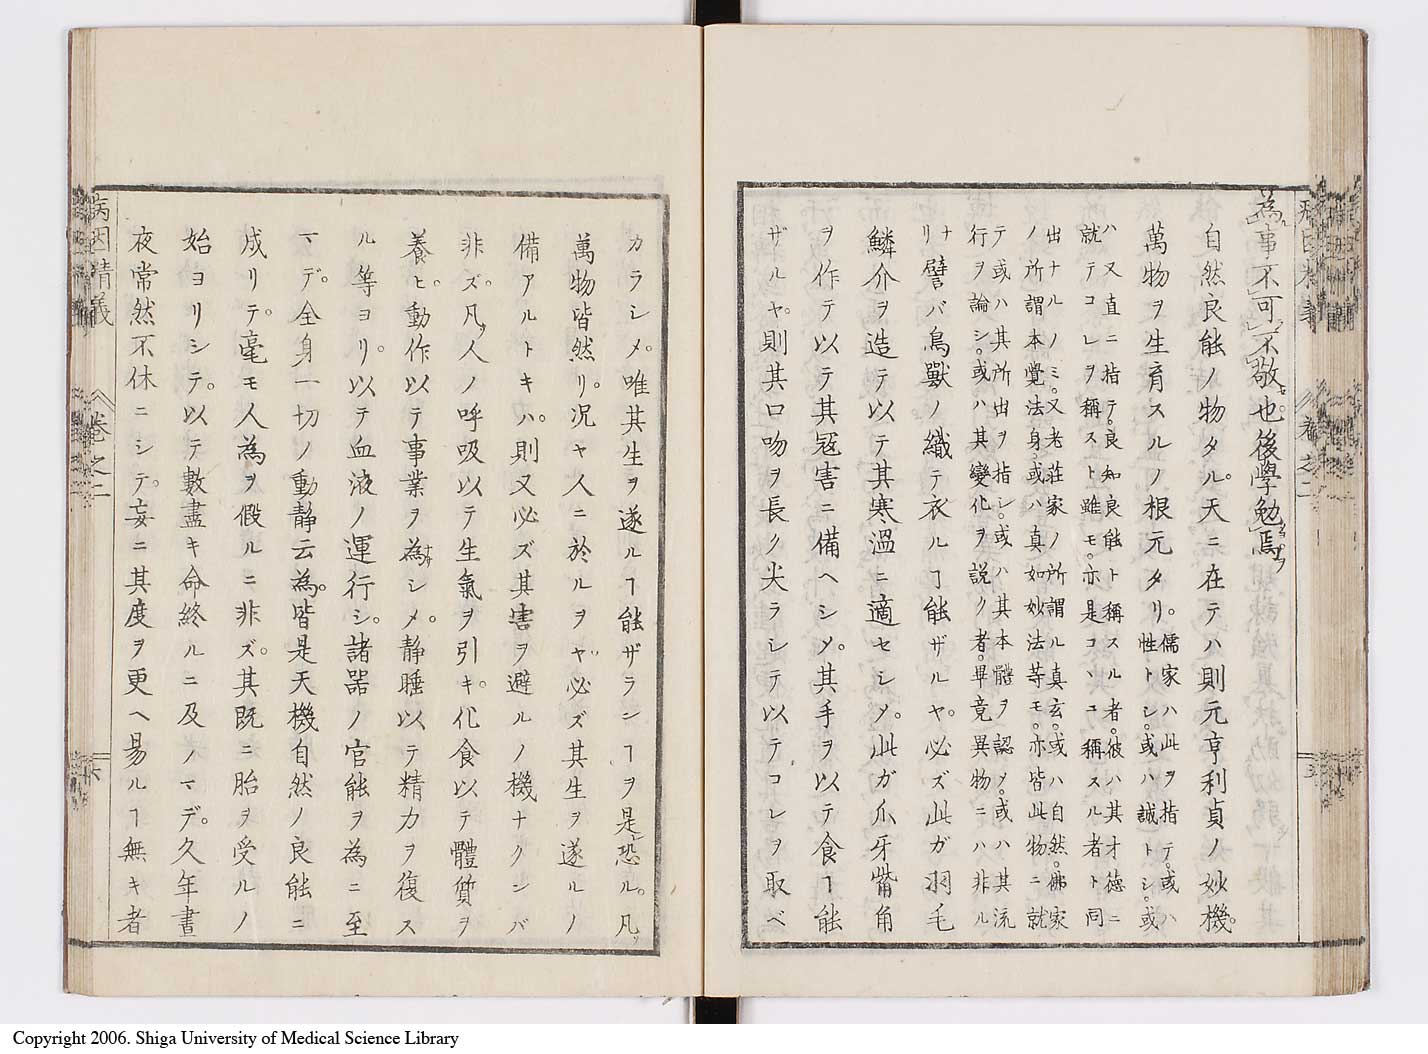 為事不可不敬也後學勉焉
自然良能ノ物タル。天ニ在テハ則元亨利貞ノ妙機。
萬物ヲ生育スルノ根元タリ。儒家ハ此ヲ指テ。或ハ
性トシ。或ハ誠トシ。或
ハ又直ニ指テ。良知良能ト稱スル者。彼ハ其才德ニ
就テコレヲ稱スト雖モ。亦是コヽニ稱スル者ト同
出ナルノミ。又老莊家ノ所謂ル真玄。或ハ自然。佛家
ノ所謂本覺法身。或ハ真如妙法等モ。亦皆此物ニ就
テ或ハ其所出ヲ指シ。或ハ其本體ヲ認メ。或ハ其流
行ヲ論シ。或ハ其變化ヲ説ク者。畢竟異物ニハ非ル
ナリ
譬バ鳥獸ノ織テ衣ルヿ能ザルヤ。必ズ此ガ羽毛
鱗介ヲ造テ以テ其寒溫ニ適セシメ。此ガ爪牙觜角
ヲ作テ以テ其寇害ニ備ヘシメ。其手ヲ以テ食ヿ能
ザルヤ。則其口吻ヲ長ク尖ラシテ以テコレヲ取ベ
カラシメ。唯其生ヲ遂ルヿ能ザランヿヲ是恐ル。凡ソ
萬物皆然リ。況ヤ人ニ於ルヲヤ。必ズ其生ヲ遂ルノ
備アルトキハ。則又必ズ其害ヲ避ルノ機ナクンバ
非ズ。凡ソ人ノ呼吸以テ生氣ヲ引キ。化食以テ體質ヲ
養ヒ。動作以テ事業ヲ為サシメ。靜睡以テ精力ヲ復ス
ル等ヨリ。以テ血液ノ運行シ。諸器ノ官能ヲ為ニ至
マデ。全身一切ノ動靜云為。皆是天機自然ノ良能ニ
成リテ。毫モ人為ヲ假ルニ非ズ。其既ニ胎ヲ受ルノ
始ヨリシテ。以テ數盡キ命終ルニ及ノマデ。久年晝
夜常然不休ニシテ。妄ニ其度ヲ更ヘ易ルヿ無キ者
病因精義
卷之二
六
Copyright 2006. Shiga University of Medical Science Library